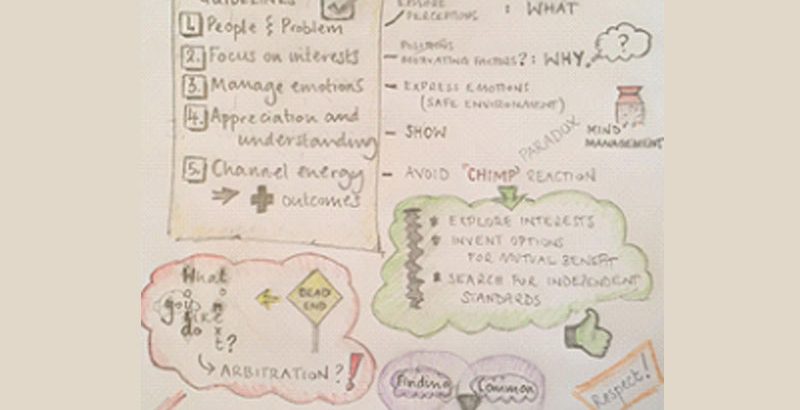 GUIDELINES
1. People & Problem
2. Focus on interests
3. Manage emotions
4. Appreciation and
understanding
5. Channel energy
outcomes
EXPLORE
PERCEPTIONS : WHAT
MOTIVATING FACTORS? : WHY
?
- EXPRESS EMOTIONS
(SAFE ENVIRONMENT)
- SHOW
PARADOX
MIND
MANAGEMENT
- AVOID "CHIMP" REACTION
EXPLORE INTERESTS
INVENT OPTIONS
FOR MUTUAL BENEFIT
SEARCH FOR INDEPENDENT
STANDARDS
What
you
do
DEAD
END
ARBITRATION?!
Finding Common
Respect!